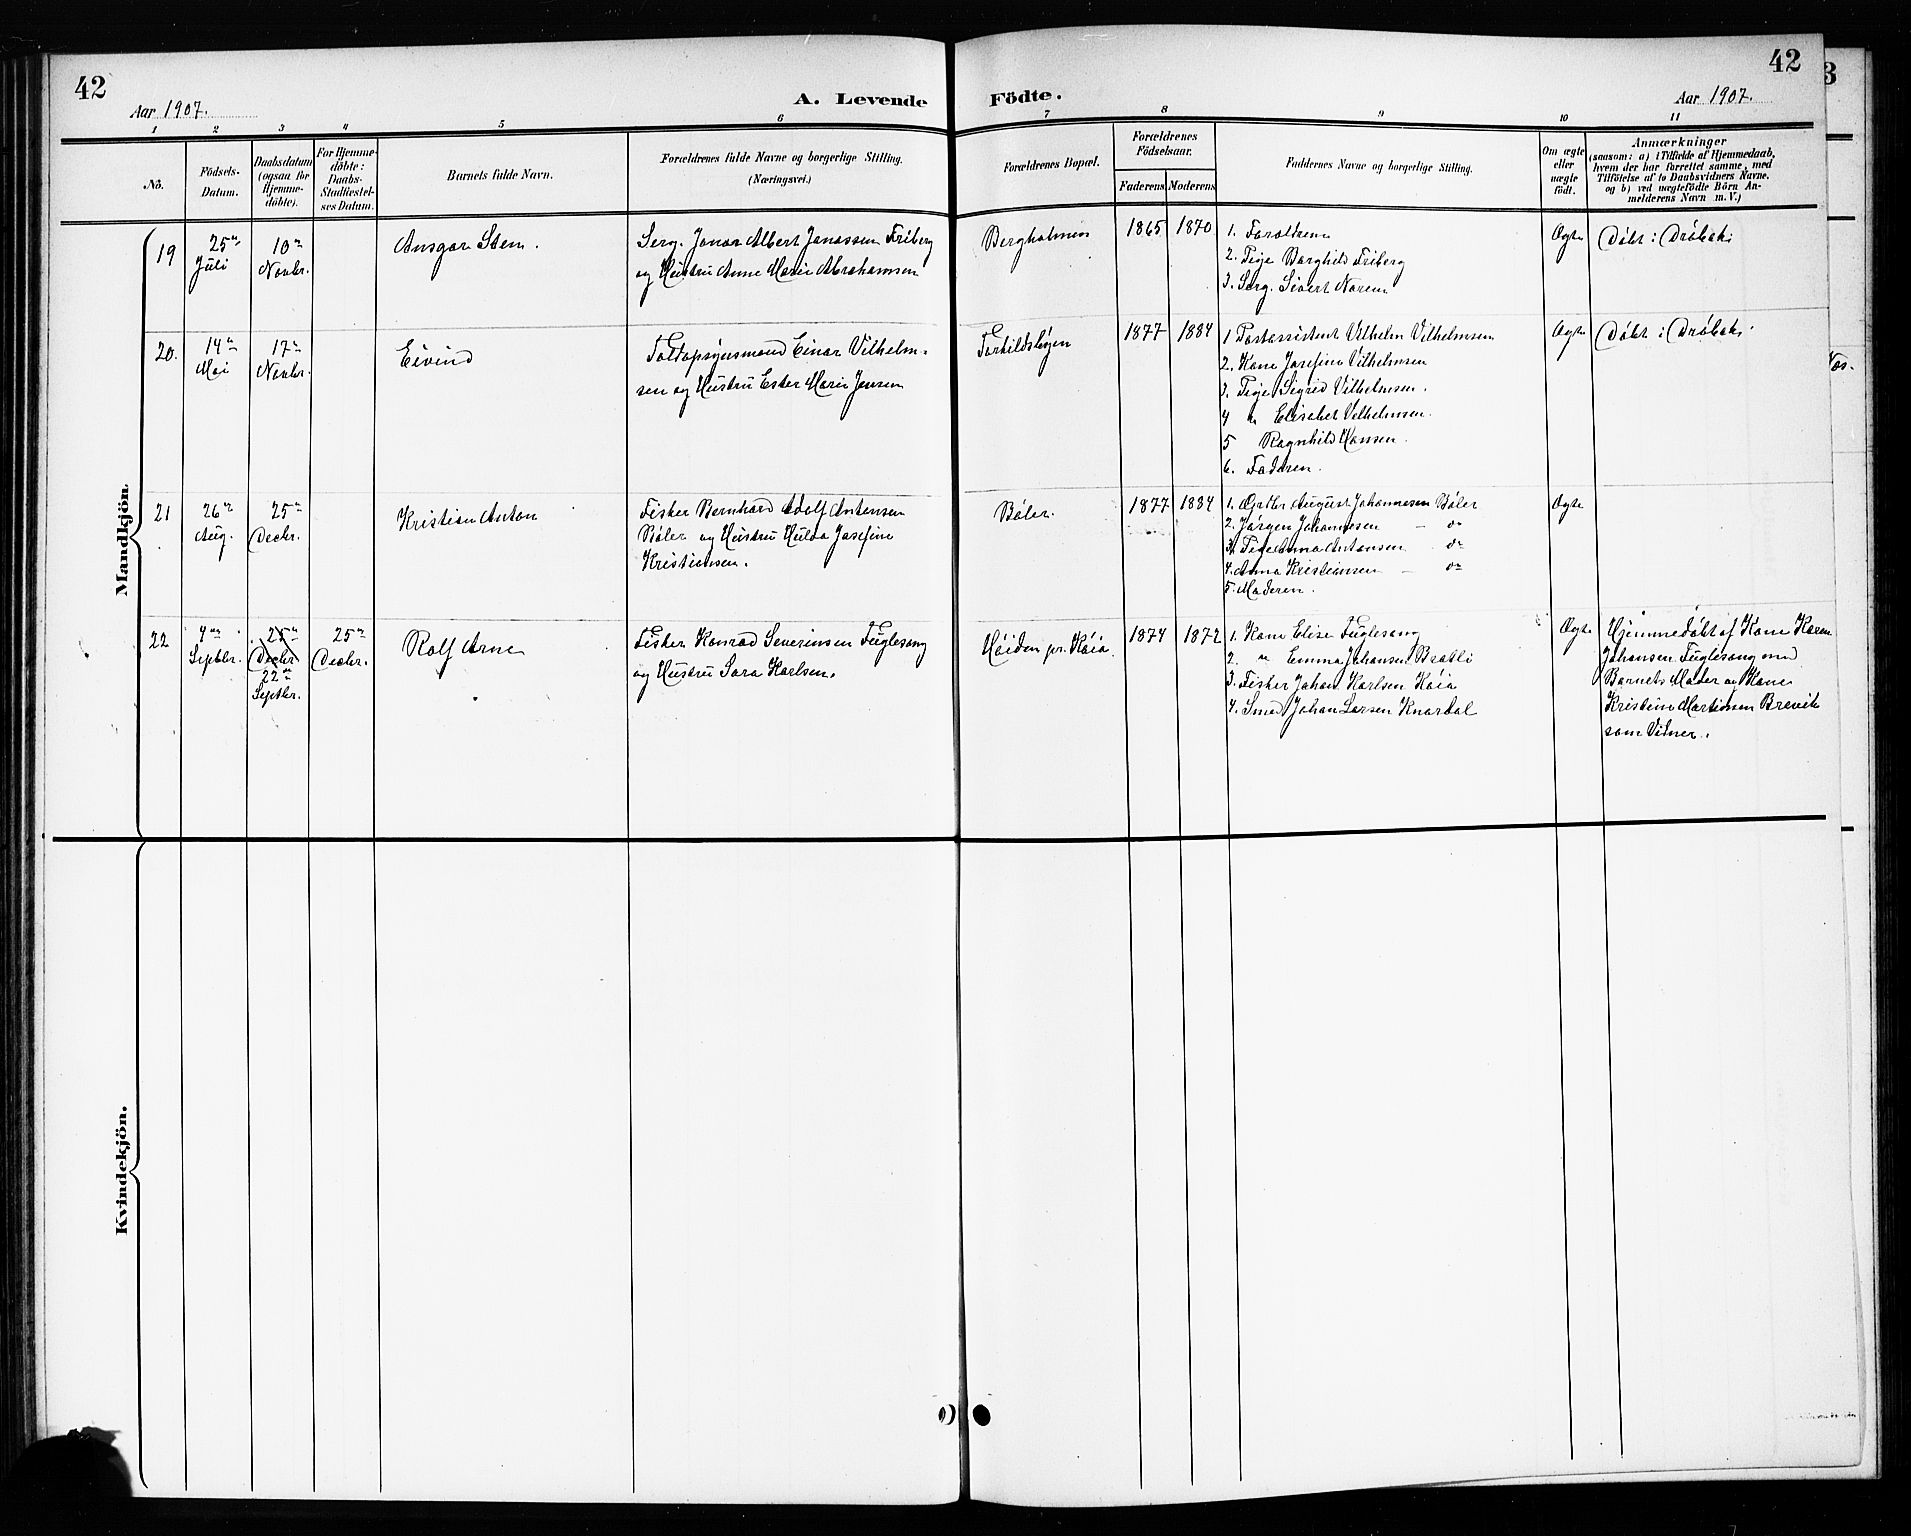 42
Aar 1907.
A. Levende
Födte.
Aar 1907.
42
1 2 3 4 5 6 7 8 9 10 11
No.
Födsels-
Datum.
Daabsdatum
(ogsaa for
Hjemme-
döbte).
For Hjemme-
döbte:
Daabs-
Stadfæstel-
ses Datum.
Barnets fulde Navn.
Forældrenes fulde Navne og borgerlige Stilling.
(Næringsvei.)
Forældrenes Bopæl.
Forældrenes
Födselsaar.
Faderens
Moderens
Faddernes Navne og borgerlige Stilling.
Om ægte
eller
uægte
födt.
Anmærkninger
(saasom: a) i Tilfælde af Hjemmedaab,
hvem der har forrettet samme, med
Tilföielse af to Daabsvidners Navne.
og b) ved uægtefödte Börn An-
melderens Navn m. V.)
Mandkjön.
19
25de
Juli
10de
Novbr.
Ansgar Sten.
Serg. Jonas Albert Jonassen Friberg
og Hustru Anne Marie Abrahamsen
Bergholmen
1865
1870
1. Forældrene
2. Pige Borghild Friberg
3. Serg. Sivert Norem
Ægte
Döbt i Dröbak.
20.
14de
Mai
17de
Novbr.
Eivind
Toldopsynsmand Einar Vilhelm-
sen og Hustru Ester Marie Jensen
Torkildsbyen
1877
1884
1 Postassistent Vilhelm Vilhelmsen
2. Kone Josefine Vilhelmsen
3. Pige Sigrid Vilhelmsen.
4 " Elisabet Vilhelmsen.
5 Ragnhild Hansen.
6. Faderen.
Ægte
Döbt i Dröbak.
21
26de
Aug.
25de
Decbr.
Kristian Anton
Fisker Bernhard Adolf Antonsen
Böler og Hustru Hulda Josefine
Kristiansen.
Böler.
1877
1884
1. August Johannesen Böler
2. Jörgen Johannesen — do
3. Pige Anna Antonsen do
4. Anna Kristiansen — do
5. Moderen.
Ægte
22
4de
Septbr.
25de
Decbr
22de
Septbr.
25de
Decbr.
Rolf Arne
Fisker Konrad Severinsen Fuglesang
og Hustru Sara Karlsen.
Höiden pr. Köia
1874
1872
1. Kone Elise Fuglesang
2. " Emma Johansen Bratli
3. Fisker Johan Karlsen Köia
4. Smed Johan Larsen Knardal
Ægte
Hjemmedöbt af Kone Karen
Johansen Fuglesang med
Barnets Moder og Kone
Kristine Martinsen Brevik
som Vitner.
Kvindekjön.